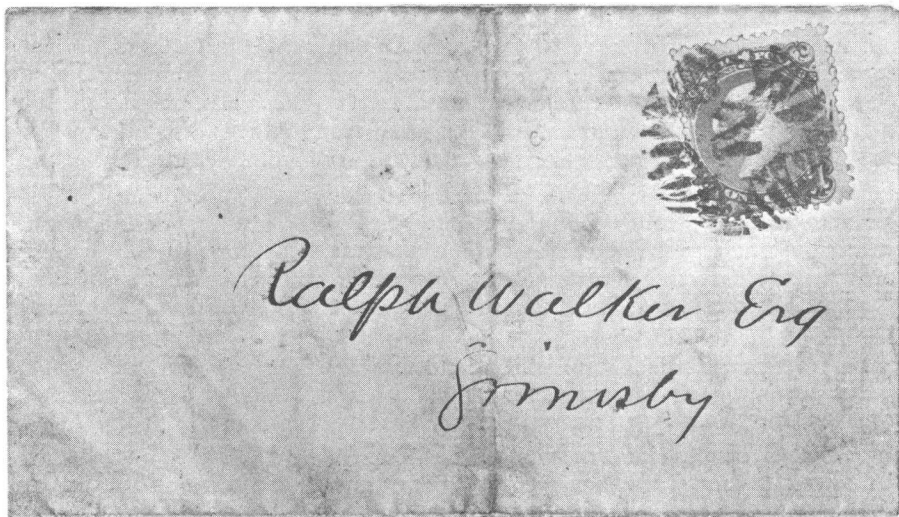 Ralph Walker Esq
Grimsby